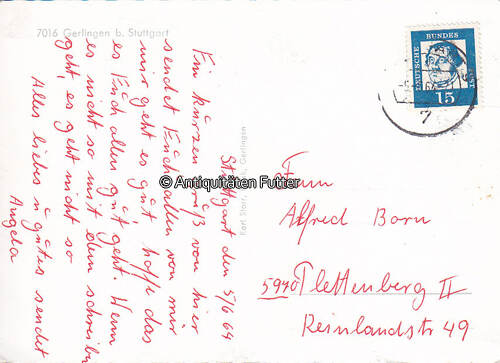 7016 Gerlingen b. Stuttgart
Stuttgart den 5/6 64
Ein kurzen Gruß von hier
sendet Euch allen von mir
mir geht es gut hoffe das
es Euch allen gut geht. Wenn
es nicht so mit dem schreiben
geht, es geht nicht so
Alles liebes u gutes sendet
Angela
Karl Storr, Gerlingen
DEUTSCHE BUNDESPOST
15
7
© Antiquitäten Futter
Alfred Born
5970 Plettenberg II
Reinlandstr 49